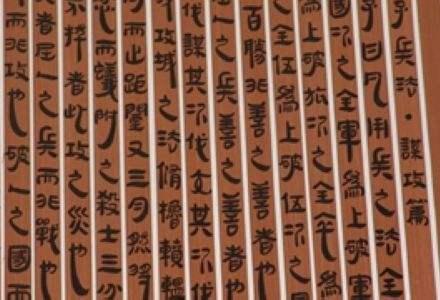 子兵法·謀攻篇
子曰凡用兵之法全
國次之全軍爲上破軍
爲上破旅次之全卒爲
之全伍爲上破伍次之
百勝非善之善者也
人之兵善之善者也
伐謀其次伐交其次伐
攻城之法脩櫓轒轀
而出距闉又三月然後
忿而蟻附之殺士三分
不拔者此攻之災也
者屈人之兵而非戰也
而非攻也破人之國而